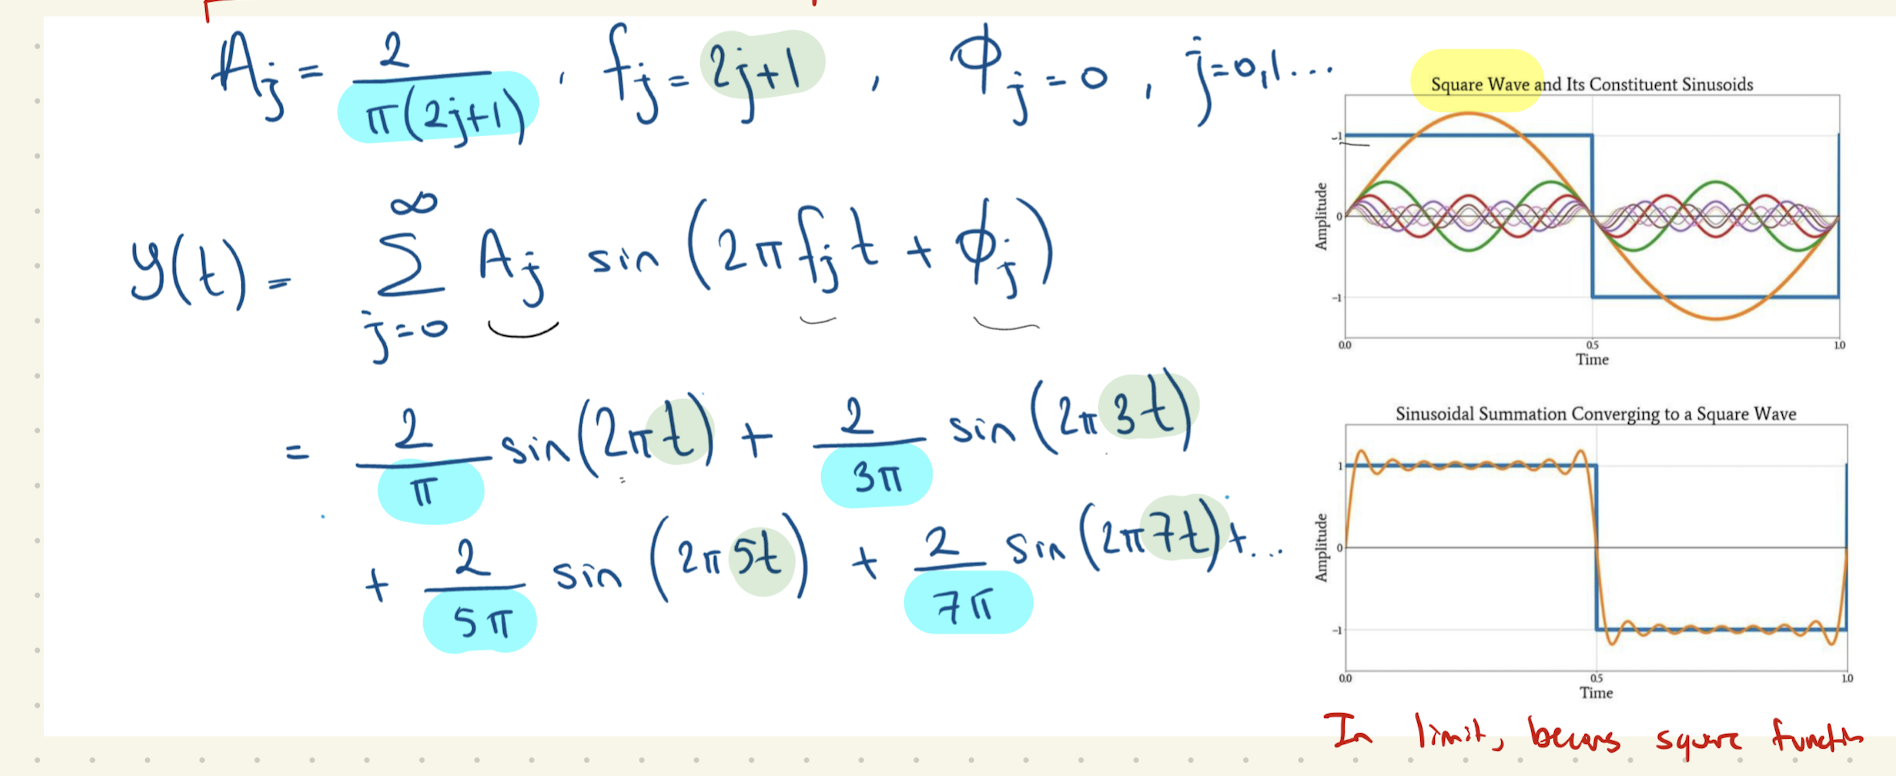 A_j = 2/π(2j+1) , f_j = 2j+1 , Φ_j = 0 , j=0,1...
y(t) = ∑_{j=0}^{∞} A_j sin(2πf_jt + ϕ_j)
= 2/π sin(2πt) + 2/3π sin(2π3t)
+ 2/5π sin(2π5t) + 2/7π sin(2π7t)+...
Square Wave and Its Constituent Sinusoids
1
Amplitude
0
-1
0.0 0.5 1.0
Time
Sinusoidal Summation Converging to a Square Wave
1
Amplitude
0
-1
0.0 0.5 1.0
Time
In limit, square